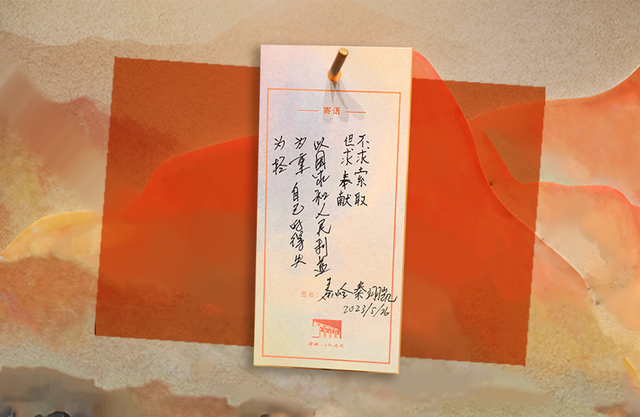 寄语
不求索取
但求奉献
以国家和人民利益
为重 自己的得失
为轻
签名: 秦岭 秦
2023/5/26